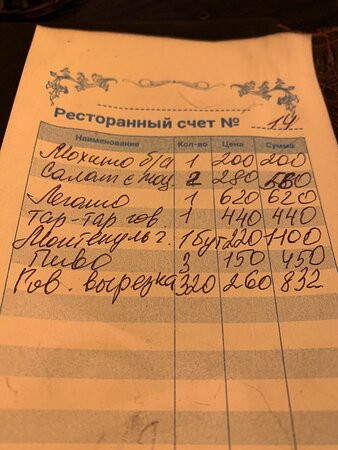 Ресторанный счет № 14
Наименование Кол-во Цена Сумма
Мохито б/а 1 200 200
Салат с моц. 2 280 560
Легато 1 620 620
Тар-тар гов. 1 440 440
Монтепульч. 1 бут 220 1100
Пиво 3 150 450
Гов. вырезка 320 260 832